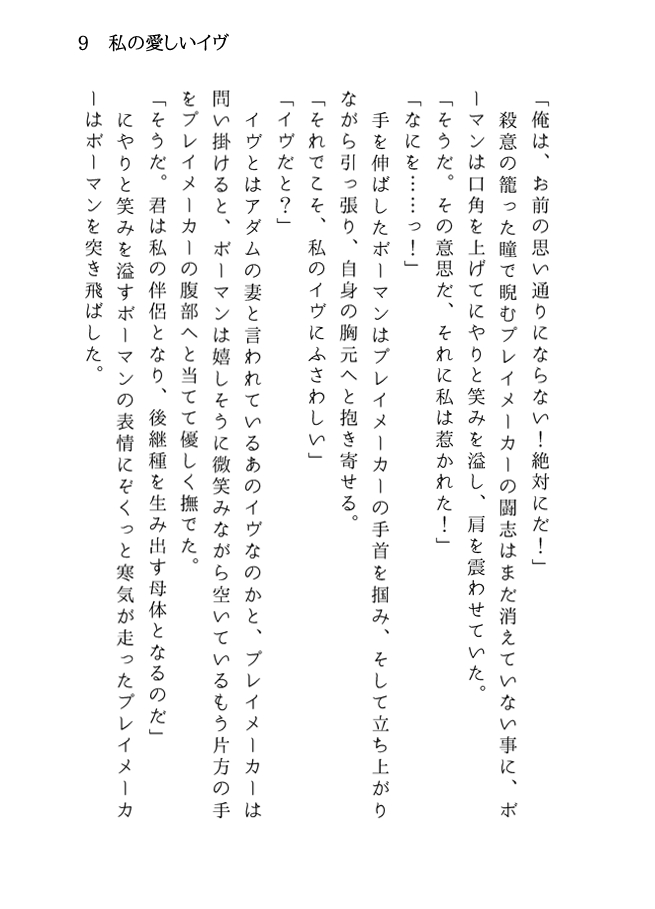 9　私の愛しいイヴ
「俺は、お前の思い通りにならない！絶対にだ！」
　殺意の籠った瞳で睨むプレイメーカーの闘志はまだ消えていない事に、ボ
ーマンは口角を上げてにやりと笑みを溢し、肩を震わせていた。
「そうだ。その意思だ、それに私は惹かれた！」
「なにを……っ！」
　手を伸ばしたボーマンはプレイメーカーの手首を掴み、そして立ち上がり
ながら引っ張り、自身の胸元へと抱き寄せる。
「それでこそ、私のイヴにふさわしい」
「イヴだと？」
　イヴとはアダムの妻と言われているあのイヴなのかと、プレイメーカーは
問い掛けると、ボーマンは嬉しそうに微笑みながら空いているもう片方の手
をプレイメーカーの腹部へと当てて優しく撫でた。
「そうだ。君は私の伴侶となり、後継種を生み出す母体となるのだ」
　にやりと笑みを溢すボーマンの表情にぞくっと寒気が走ったプレイメーカ
ーはボーマンを突き飛ばした。